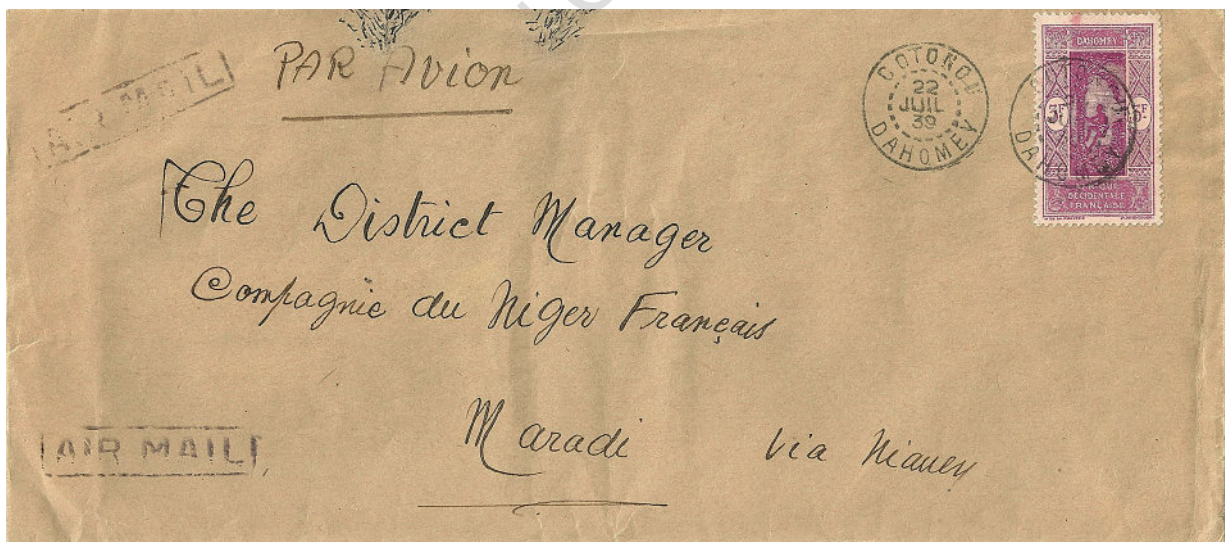 PAR Avion
AIR MAIL
COTONOU
22
JUIL
39
DAHOMEY
DAHOMEY
5F
5F
DAHOMEY
OCCIDENTALE
FRANÇAISE
The District Manager
Compagnie du Niger Français
Maradi Via Niamey
AIR MAIL